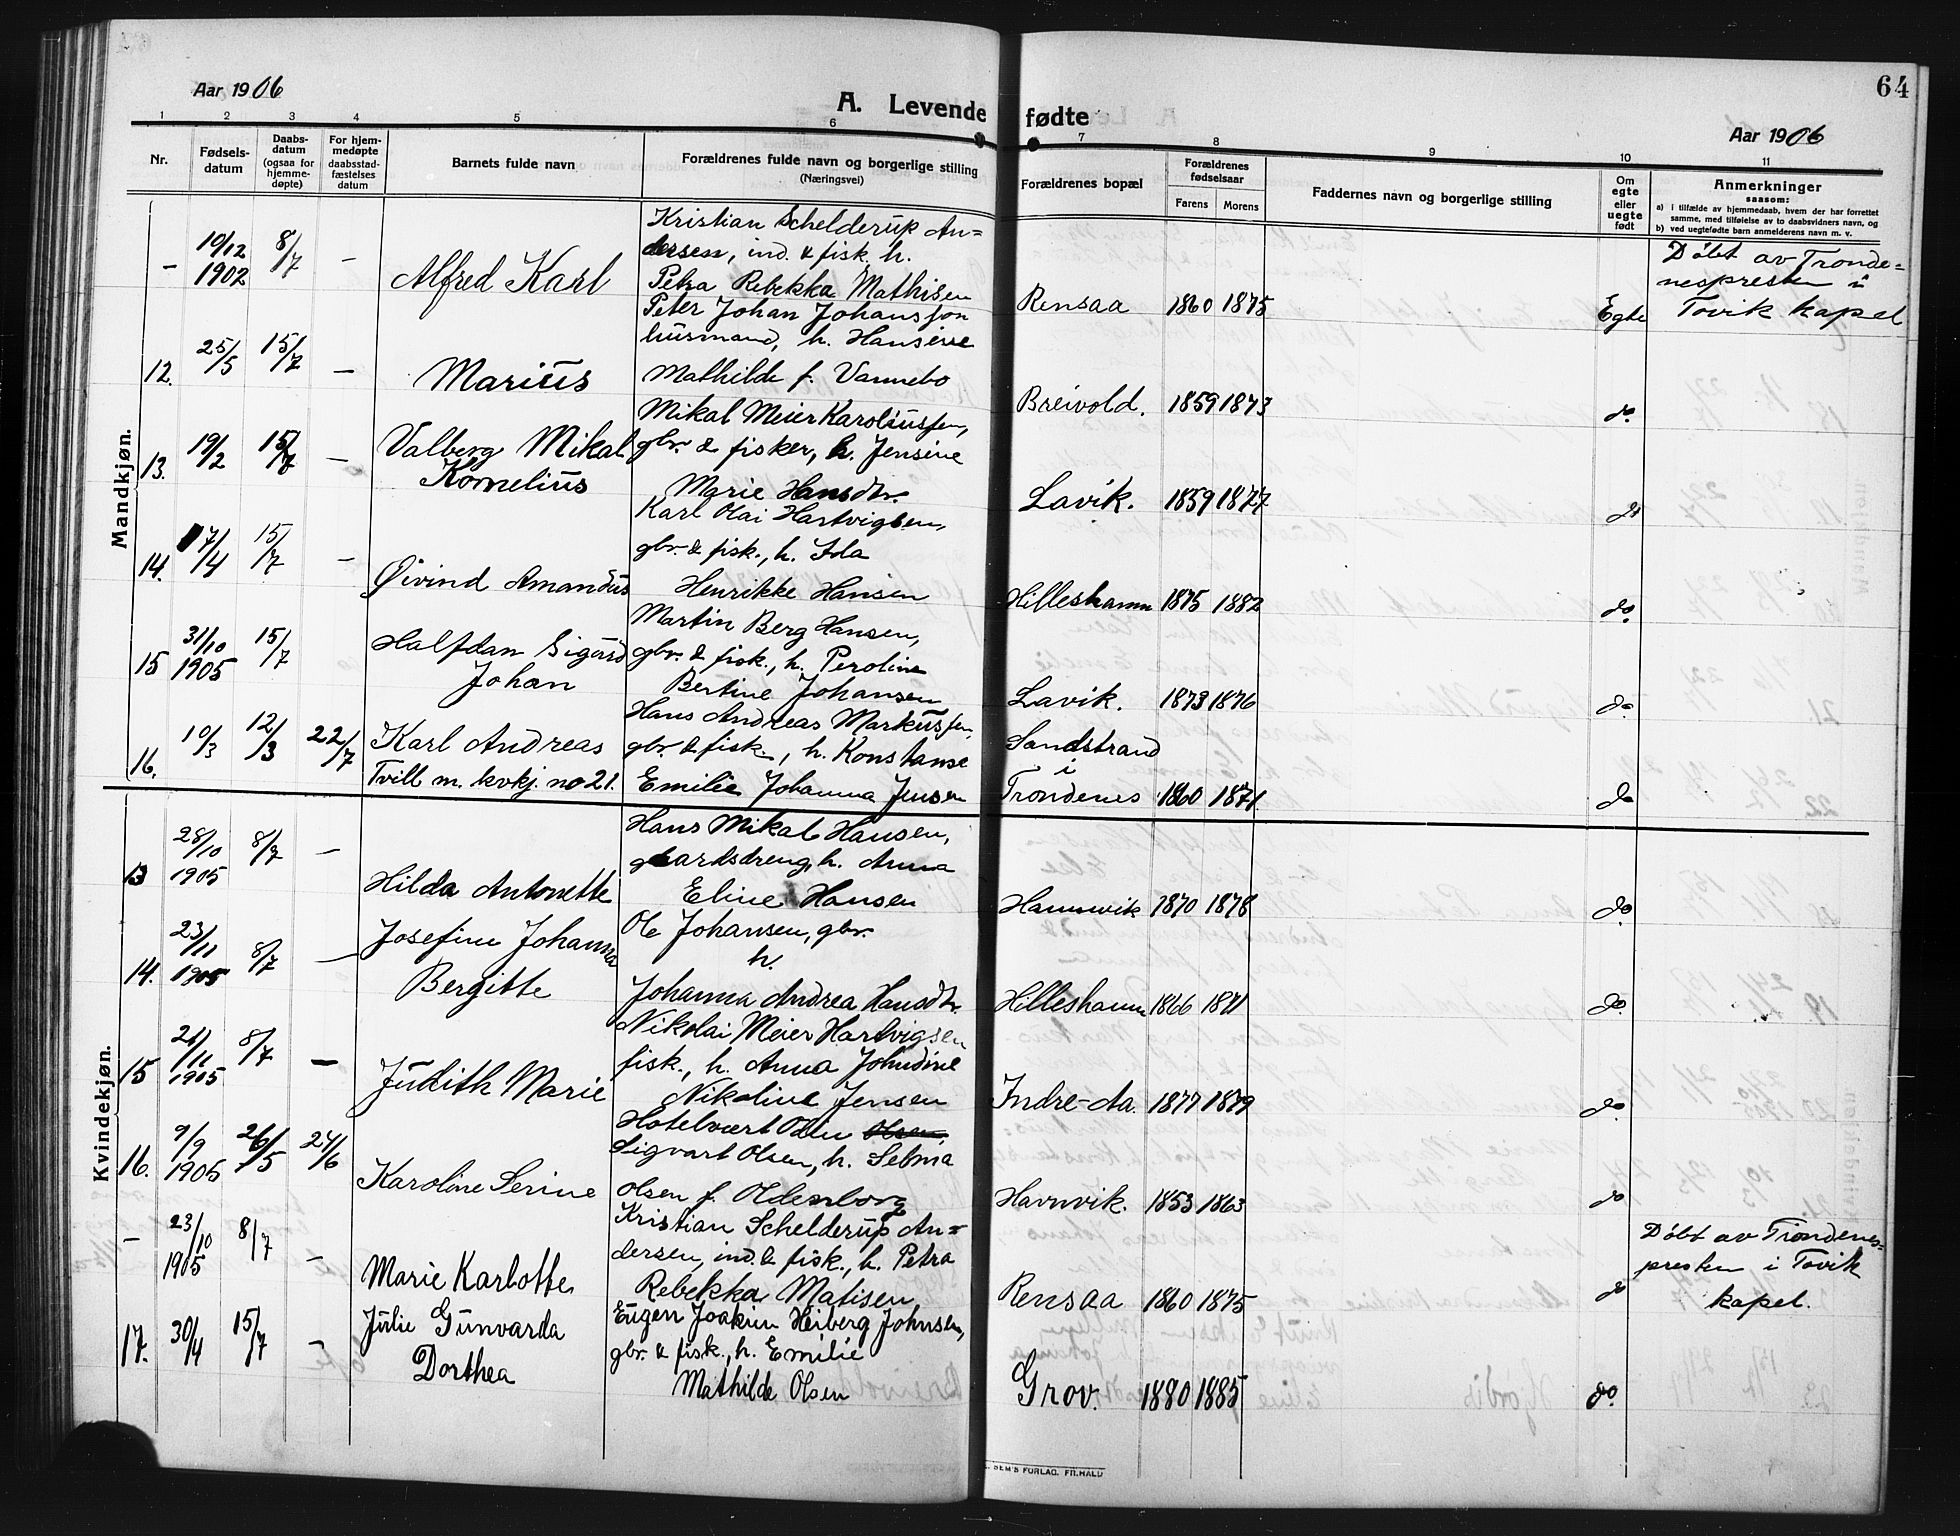 64
Aar 1906
A. Levende fødte
Aar 1906
1 2 3 4 5 6 7 8 9 10 11
Nr.
Fødsels-
datum
Daabs-
datum
(ogsaa for
hjemme-
døpte)
For hjem-
medøpte
daabsstad-
fæstelses
datum
Barnets fulde navn
Forældrenes fulde navn og borgerlige stilling
(Næringsvei)
Forældrenes bopæl
Forældrenes
fødselsaar
Farens Morens
Faddernes navn og borgerlige stilling
Om
egte
eller
uegte
født
Anmerkninger
saasom:
a) i tilfælde av hjemmedaab, hvem der har forrettet
samme, med tilføielse av to daabsvidners navn, og
b) ved uegtefødte barn anmelderens navn m. v.
Mandkjøn.
– 10/12 1902 8/7 – Alfred Karl
Kristian Schelderup An=
dersen, ind. & fisk. h.
Petra Rebekka Mathisen
Rensaa 1860 1875 Egte
Døbt av Tronde=
nespresten i
Tovik kapel
12. 25/5 15/7 – Marius
Peter Johan Johanssen
husmand, h. Hansine
Mathilde f. Vannebo
Breivold. 1859 1873 do.
13. 19/2 15/7 – Valberg Mikal
Kornelius
Mikal Meier Karoliussen,
gbr. & fisker, h. Jensine
Marie Hansdtr.
Lavik. 1859 1877 do
14. 7/4 15/7 – Øivind Amandus
Karl Olai Hartvigsen,
gbr. & fisk., h. Ida
Henrikke Hansen
Hilleshamn 1875 1882 do.
15 31/10 1905 15/7 Halfdan Sigurd
Johan
Martin Berg Hansen,
gbr. & fisk., h. Peroline
Bertine Johansen
Lavik. 1873 1876 do
16. 10/3 12/3 22/7 Karl Andreas
Tvill. m. kvkj. no 21.
Hans Andreas Markussen,
gbr. & fisk., h. Konstanse
Emilie Johanna Jensen
Sandstrand
i
Trondenes 1860 1871. do
Kvindekjøn.
13 28/10 1905 8/7 – Hilda Antonette
Hans Mikal Hansen,
gaardsdreng, h. Anna
Eline Hansen
Hamnvik 1870 1878 do.
14. 23/11 1905 8/7 – Josefine Johanna
Bergitte
Ole Johansen, gbr.
h.
Johanna Andrea Hansdtr.
Hilleshamn 1866 1871 do.
15 21/11 1905 8/7 – Judith Marie
Nikolai Meier Hartvigsen
fisk., h. Anna Johndine
Nikoline Jensen
Indre-Aa. 1877 1879 do.
16. 9/9 1905 26/5 24/6 Karoline Serine
Hotelvært Odin Olsen,
Sigvart Olsen, h. Selma
Olsen f. Oldenborg
Havnvik. 1853 1863 do
– 23/10 1905 8/7 – Marie Karlotte
Kristian Schelderup An=
dersen, ind. & fisk., h. Petra
Rebekka Matisen
Rensaa 1860 1875 do
Døbt av Trondenes=
presten i Tovik
kapel.
17. 30/4 15/7 – Julie Gunvarda
Dorthea
Eugen Joakim Heiberg Johnsen,
gbr. & fisk., h. Emilie
Mathilde Olsen
Grov. 1880 1885 do.
SEM'S FORLAG. FR.HALD